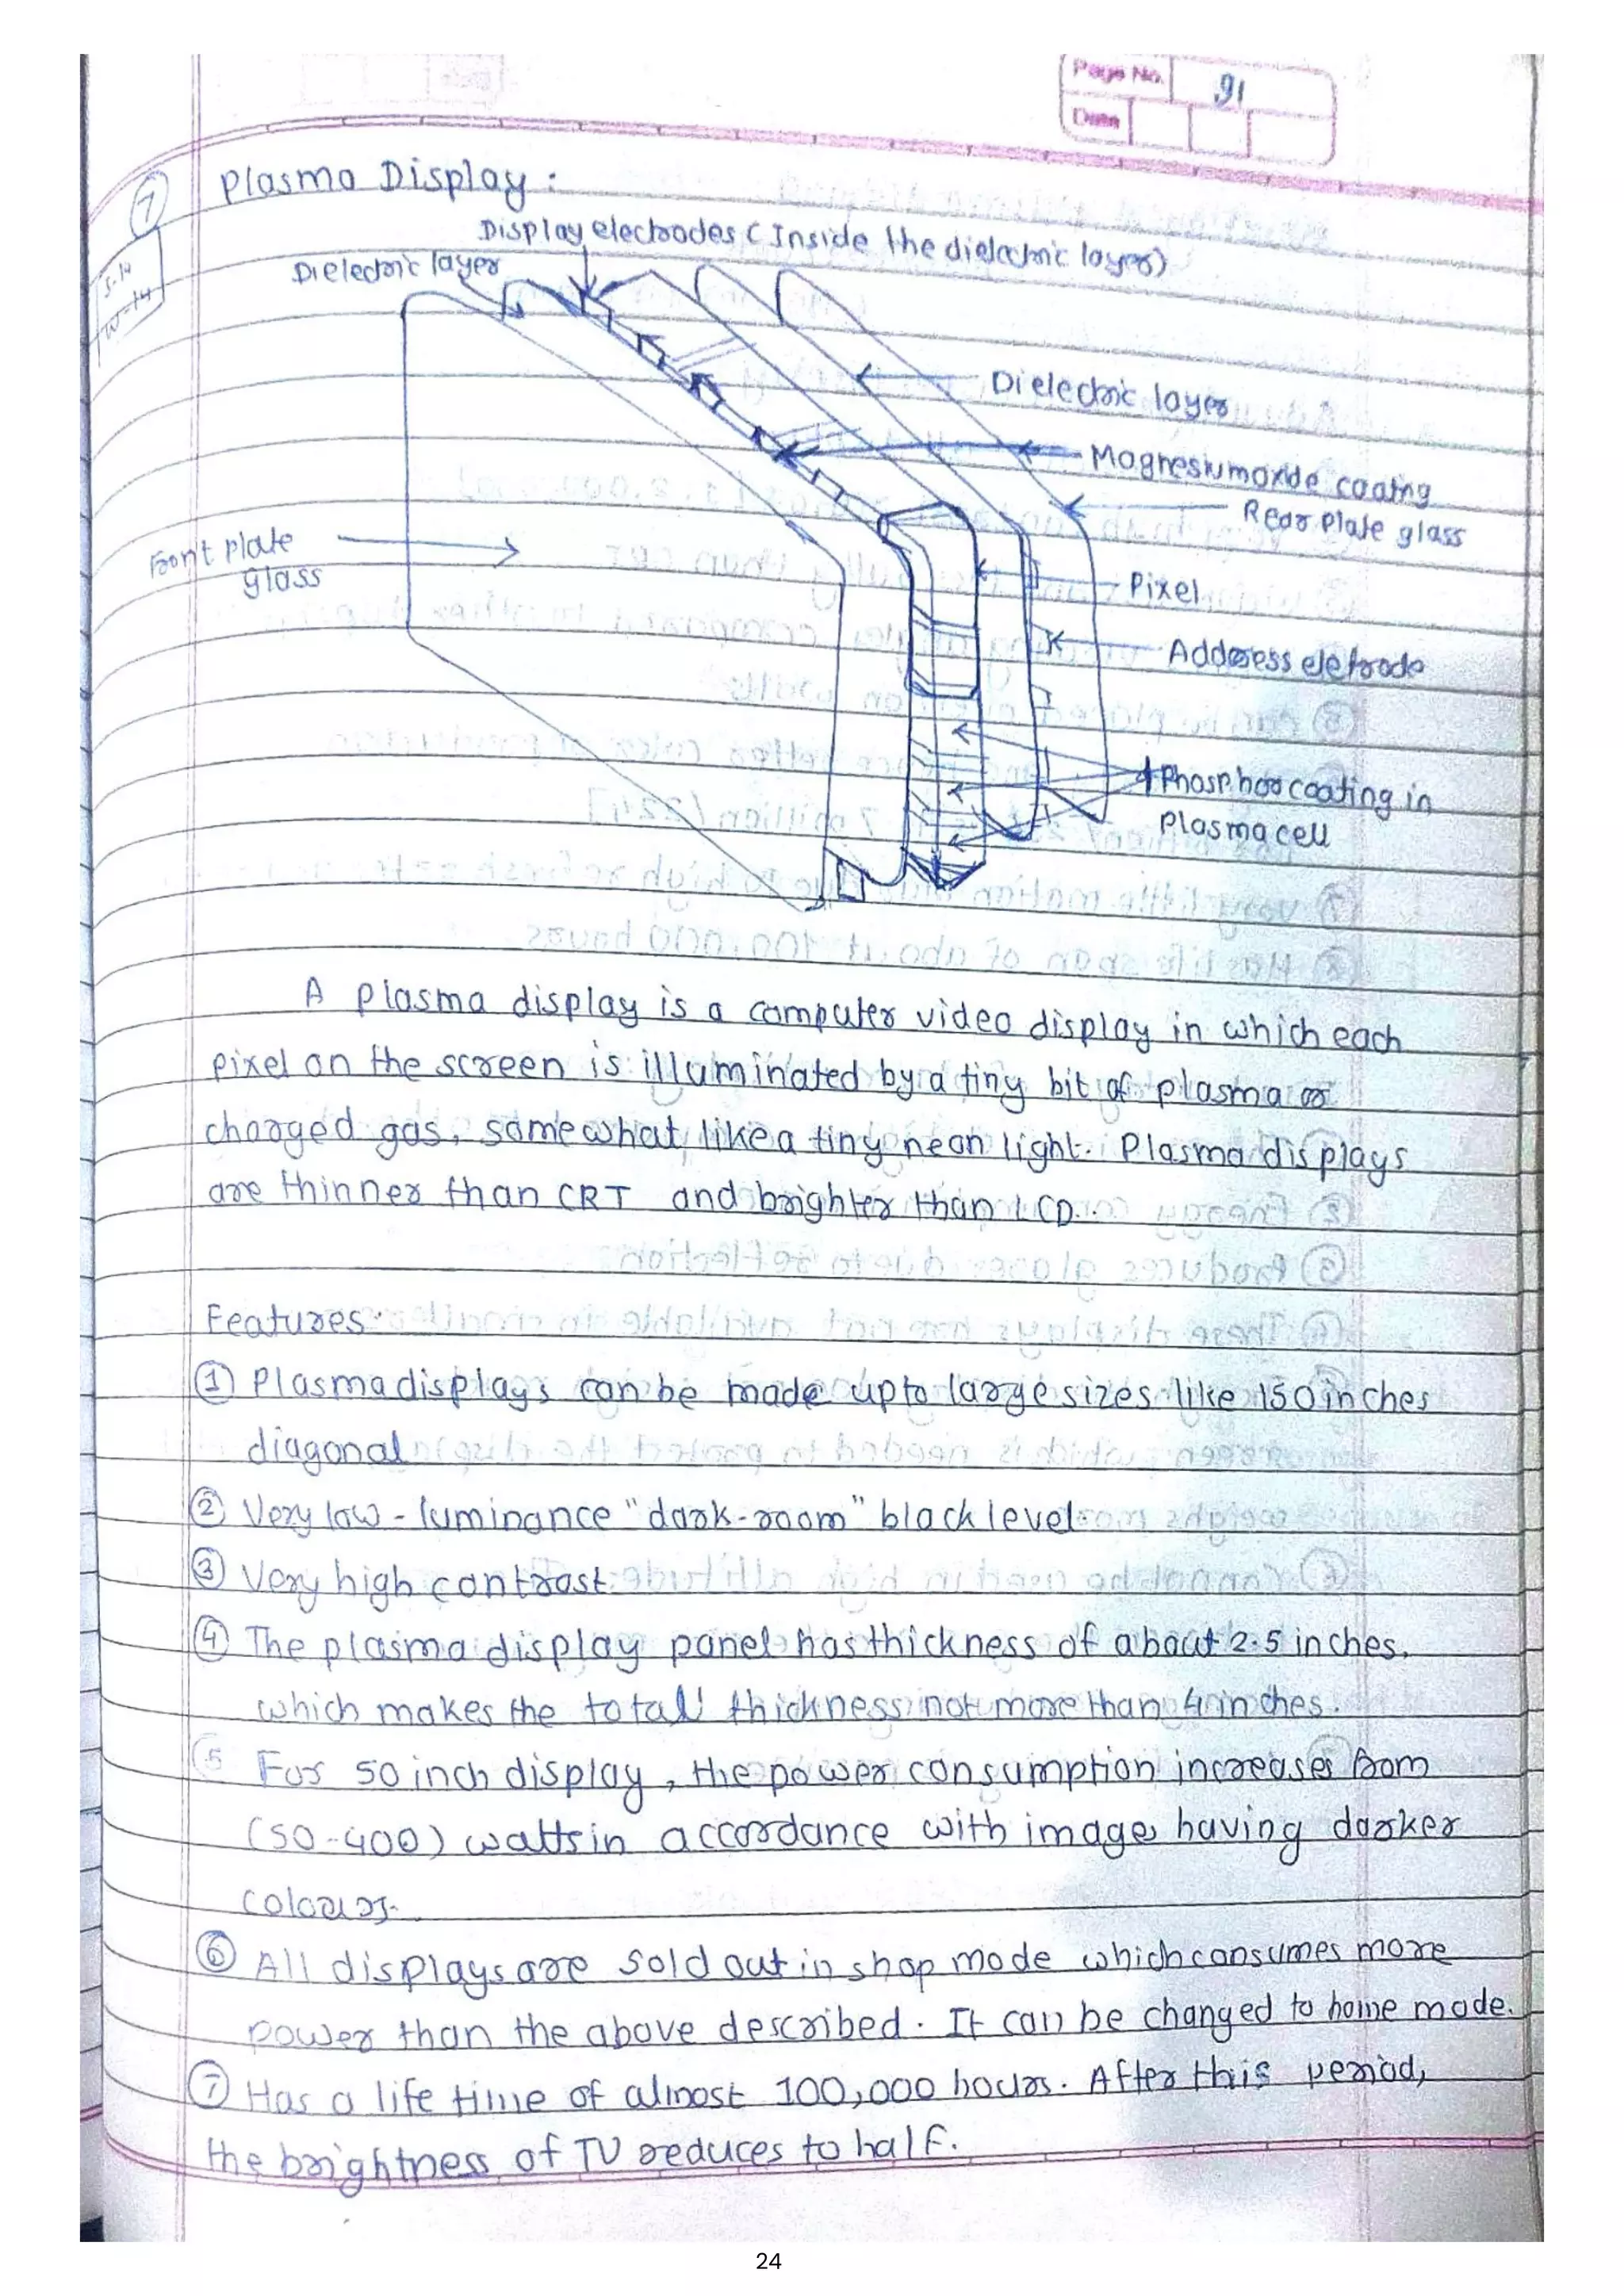 Page No. 91
Date
7 Plasma Display :
S-14
W-14
Display electrodes ( Inside the dielectric layer)
Dielectric layer
Dielectric layer
Magnesiumoxide coating
Rear Plate glass
Front plate
glass
Pixel
Address eletrode
Phosphor coating in
Plasma cell
A Plasma display is a computer video display in which each
pixel on the screen is illuminated by a tiny bit of plasma or
charged gas, somewhat like a tiny neon light. Plasma displays
are thinner than CRT and brighter than LCD.
Features:
① Plasma displays can be made upto large sizes like 150 inches
diagonal
② Very low - luminance "dark-room" black level
③ Very high contrast
④ The plasma display panel has thickness of about 2.5 inches,
which makes the total thickness not more than 4 inches.
5 For 50 inch display, the power consumption increases from
(50-400) watts in accordance with images having darker
colours.
⑥ All displays are sold out in shop mode which consumes more
power than the above described. It can be changed to home mode.
⑦ Has a life time of almost 100,000 hours. After this period,
the brightness of TV reduces to half.
24